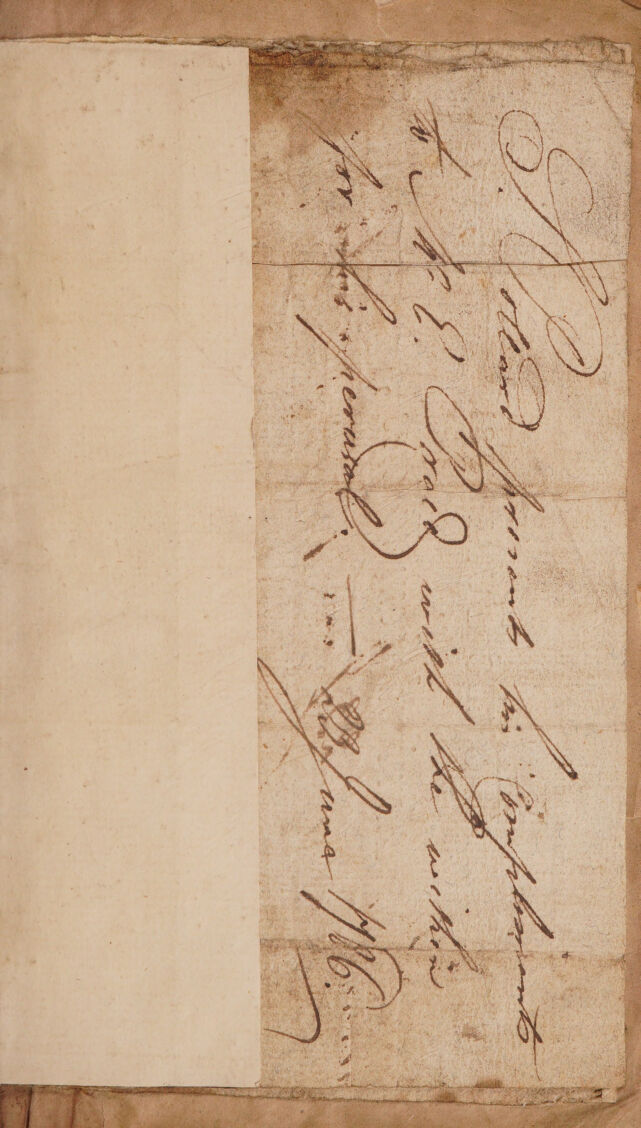 S. Pollard presents his Compliments
to Mr. E. with the within
for his perusal. — June